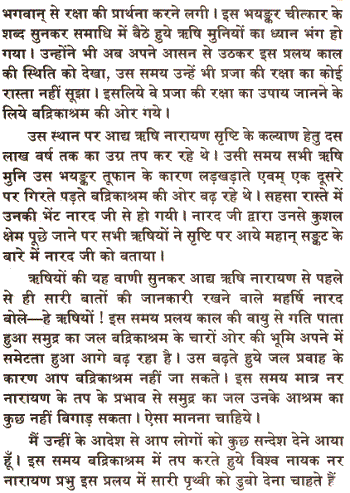 भगवान् से रक्षा की प्रार्थना करने लगी । इस भयङ्कर चीत्कार के
शब्द सुनकर समाधि में बैठे हुये ऋषि मुनियों का ध्यान भंग हो
गया । उन्होंने भी अब अपने आसन से उठकर इस प्रलय काल
की स्थिति को देखा, उस समय उन्हें भी प्रजा की रक्षा का कोई
रास्ता नहीं सूझा । इसलिये वे प्रजा की रक्षा का उपाय जानने के
लिये बद्रिकाश्रम की ओर गये ।
उस स्थान पर आद्य ऋषि नारायण सृष्टि के कल्याण हेतु दस
लाख वर्ष तक का उग्र तप कर रहे थे । उसी समय सभी ऋषि
मुनि उस भयङ्कर तूफान के कारण लड़खड़ाते एवम् एक दूसरे
पर गिरते पड़ते बद्रिकाश्रम की ओर बढ़ रहे थे । सहसा रास्ते में
उनकी भेंट नारद जी से हो गयी । नारद जी द्वारा उनसे कुशल
क्षेम पूछे जाने पर सभी ऋषियों ने सृष्टि पर आये महान् सङ्कट के
बारे में नारद जी को बताया ।
ऋषियों की यह वाणी सुनकर आद्य ऋषि नारायण से पहले
से ही सारी बातों की जानकारी रखने वाले महर्षि नारद
बोले—हे ऋषियों ! इस समय प्रलय काल की वायु से गति पाता
हुआ समुद्र का जल बद्रिकाश्रम के चारों ओर की भूमि अपने में
समेटता हुआ आगे बढ़ रहा है । उस बढ़ते हुये जल प्रवाह के
कारण आप बद्रिकाश्रम नहीं जा सकते । इस समय मात्र नर
नारायण के तप के प्रभाव से समुद्र का जल उनके आश्रम का
कुछ नहीं बिगाड़ सकता । ऐसा मानना चाहिये ।
मैं उन्हीं के आदेश से आप लोगों को कुछ सन्देश देने आया
हूँ । इस समय बद्रिकाश्रम में तप करते हुये विश्व नायक नर
नारायण प्रभु इस प्रलय में सारी पृथ्वी को डुबो देना चाहते हैं